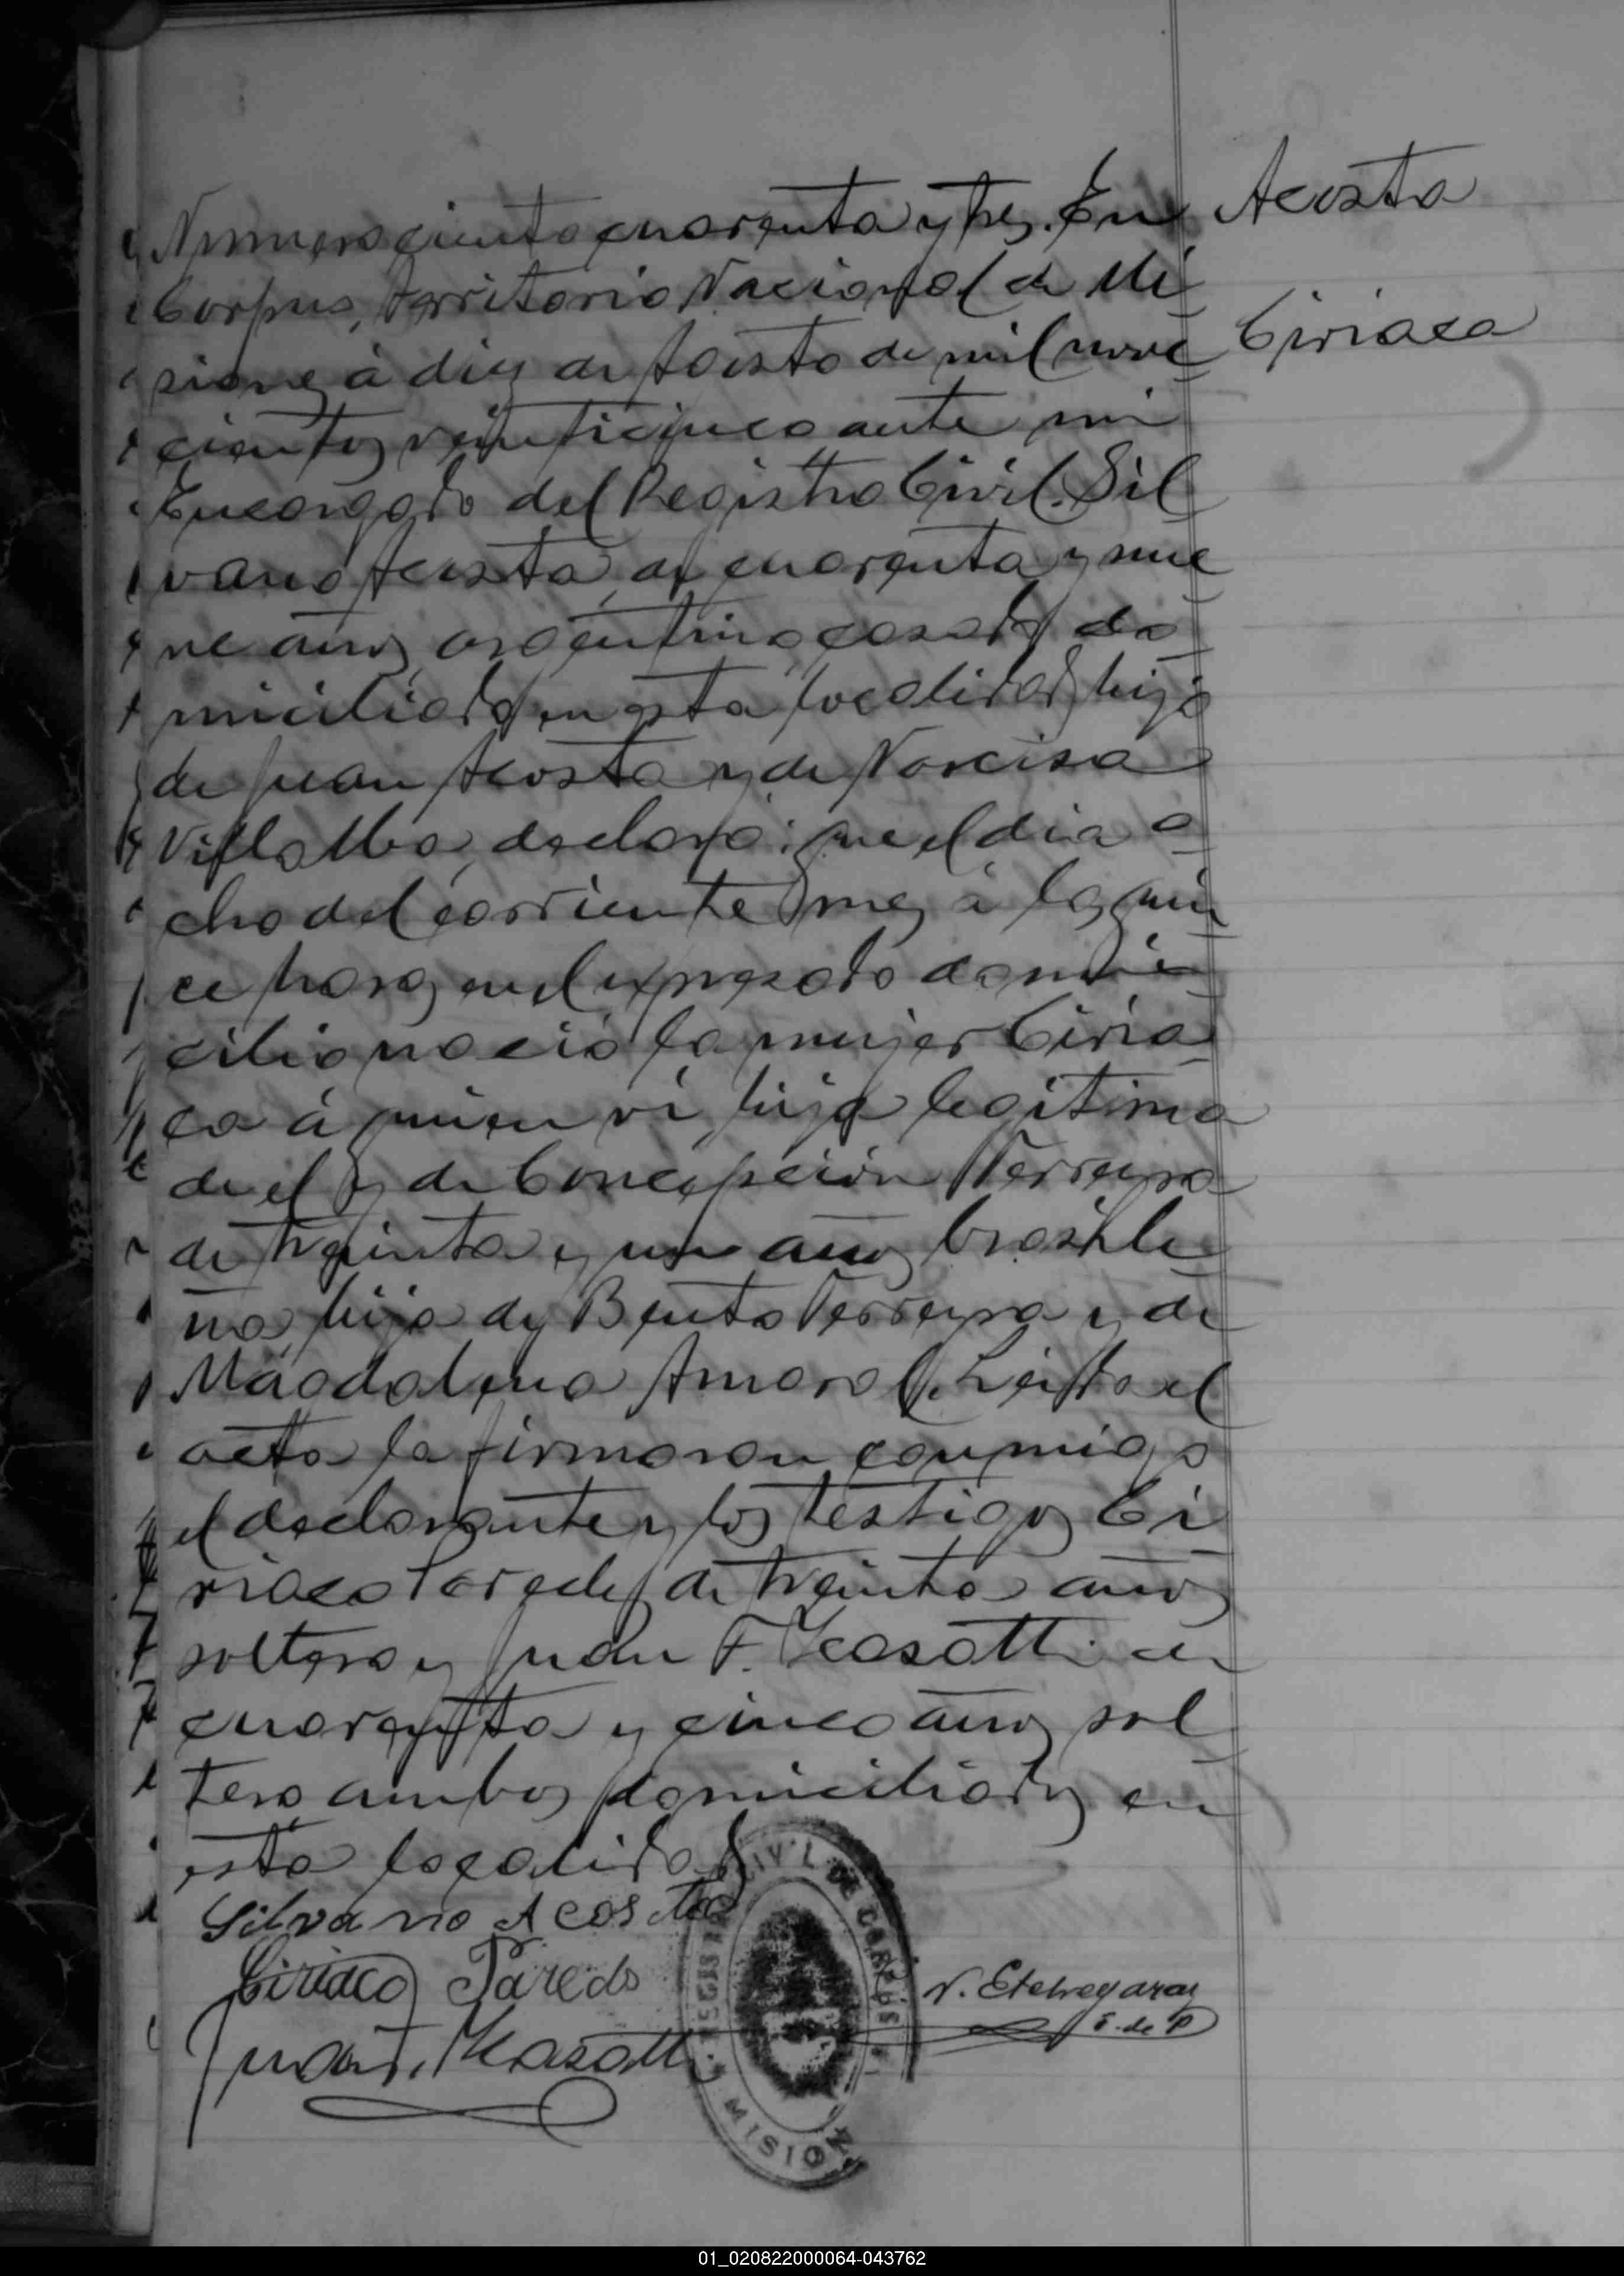 Acosta
Ciriaca
Numero ciento cuarenta y tres. En
Corpus, Territorio Nacional de Mi
siones á diez de Agosto de mil nove
cientos veinticinco ante mi
Encargado del Registro Civil. Sil
vano Acosta, de cuarenta y nue
ve años, argentino, casado, do
miciliado en esta localidad, hijo
de Juan Acosta y de Narcisa
Villalba, declaró: que el dia o
cho del corriente mes á las quin
ce horas en el expresado domi
cilio nació la mujer Ciria
ca á quien ví hija legitima
de el y de Concepción Ferreyra
de treinta y un años brasile
ña hija de Bento Ferreyra y de
Magdalena Amaral. Leida el
acta la firmaron conmigo
el declarante y los testigos Ci
riaco Paredes de treinta años
soltero y Juan F. de
cuarenta y cinco años sol
tero ambos domiciliados en
esta localidad
Silvano Acosta
Ciriaco Paredes
Juan F.
N. Etchegaray
E. de P
REGISTRO CIVIL DE CORPUS
MISIONES
01_020822000064-043762